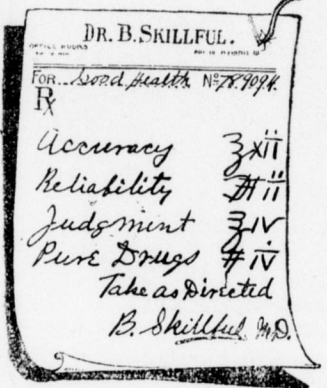 DR. B. SKILLFUL.
OFFICE HOURS
FOR Good Health No 78,909 4.
Rx
Accuracy ʒ xii
Reliability # ii
Judgment ʒ iv
Pure Drugs # iv
Take as Directed
B. Skillful M.D.